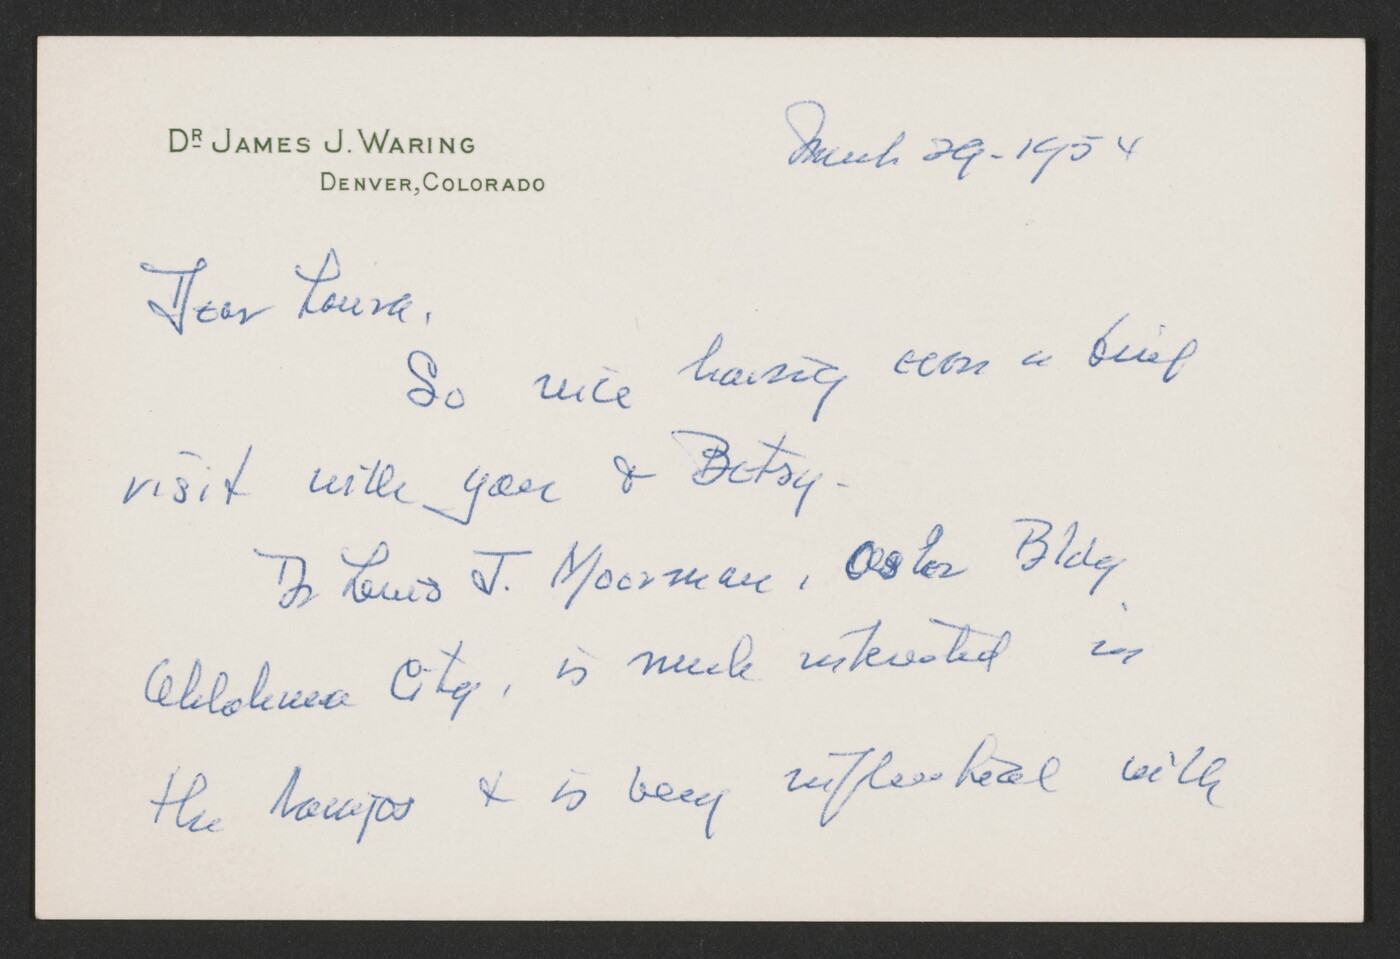 DR JAMES J. WARING
DENVER, COLORADO
March 29-1954
Dear Laura,
So nice having even a brief
visit with you & Betsy-
Dr Lewis J. Moorman, Osler Bldg
Oklahoma City, is much interested in
the Navajos & is very influential with